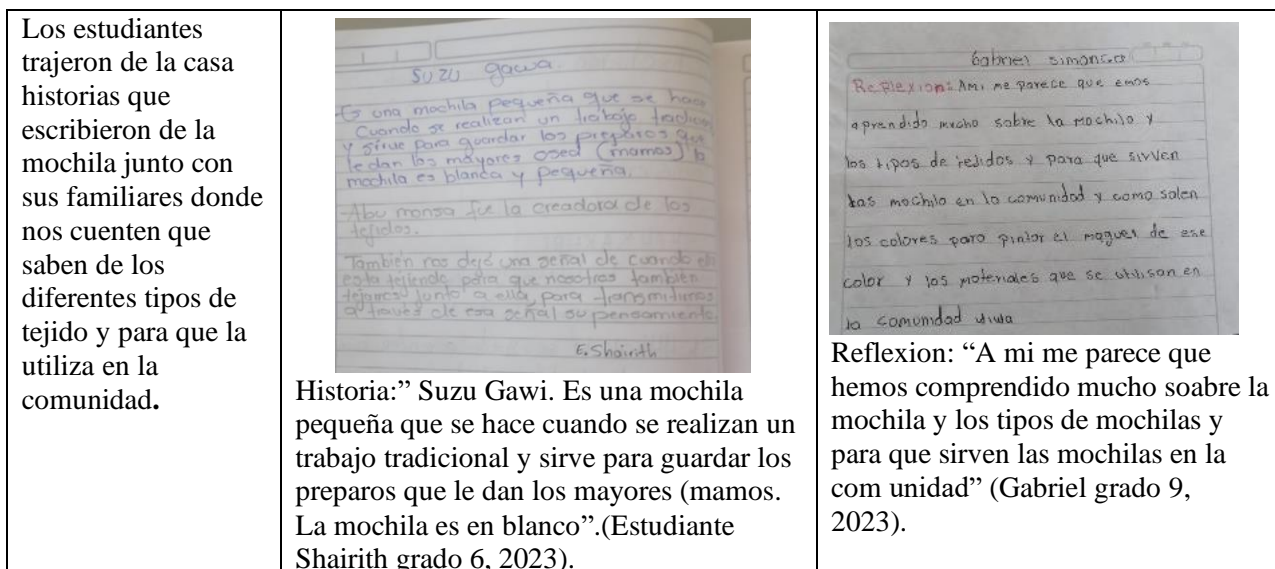 Los estudiantes
trajeron de la casa
historias que
escribieron de la
mochila junto con
sus familiares donde
nos cuenten que
saben de los
diferentes tipos de
tejido y para que la
utiliza en la
comunidad.
Suzu gawa
Es una mochila pequeña que se hace
Cuando se realizan un trabajo
y sirve para guardar los preparos que
le dan los mayores osea (mamos) la
mochila es blanca y pequeña.
Abu monsa fue la creadora de los
tejidos.
También nos dejó una señal de cuando ella
esta tejiendo para que nosotros también
tejamos junto a ella, para transmitirnos
a través de esa señal su pensamiento.
E. Shairith
Historia:” Suzu Gawi. Es una mochila
pequeña que se hace cuando se realizan un
trabajo tradicional y sirve para guardar los
preparos que le dan los mayores (mamos.
La mochila es en blanco”.(Estudiante
Shairith grado 6, 2023).
Gabriel simanca
Reflexion: Ami me parece que emos
aprendido mucho sobre la mochila y
los tipos de tejidos y para que sirven
las mochila en la comunidad y como salen
los colores para pintar el maguey de ese
color y los materiales que se utilisan en
la comunidad
Reflexion: “A mi me parece que
hemos comprendido mucho soabre la
mochila y los tipos de mochilas y
para que sirven las mochilas en la
com unidad” (Gabriel grado 9,
2023).